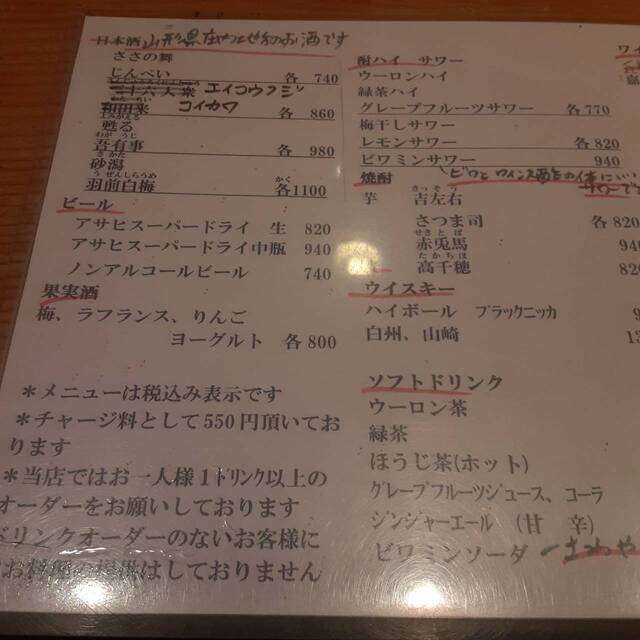 日本酒 山形県庄内地方のお酒です
ささの舞
じんぺい 各 740
三十六人衆 エイコウフジ
和田来 コイカワ 各 860
甦る
わが うじ
吾有事 各 980
さ かた
砂潟
う ぜんしらうめ かく
羽前白梅 各1100
ビール
アサヒスーパードライ 生 820
アサヒスーパードライ中瓶 940
ノンアルコールビール 740
果実酒
梅、ラフランス、りんご
ヨーグルト 各 800
＊メニューは税込み表示です
＊チャージ料として 550 円頂いてお
ります
＊当店ではお一人様１ドリンク以上の
オーダーをお願いしております
ドリンクオーダーのないお客様に
お料理の提供はしておりません
酎ハイ サワー
ウーロンハイ
緑茶ハイ
グレープフルーツサワー 各 770
梅干しサワー
レモンサワー 各 820
ビワミンサワー 940
焼酎
きっ そ う
芋 吉左右
さつま司 各 820
せき と ば
赤兎馬 940
たか ち ほ
高千穂 820
ウイスキー
ハイボール ブラックニッカ
白州、山崎
ソフトドリンク
ウーロン茶
緑茶
ほうじ茶(ホット)
グレープフルーツジュース、コーラ
ジンジャーエール (甘 辛)
ビワミンソーダ